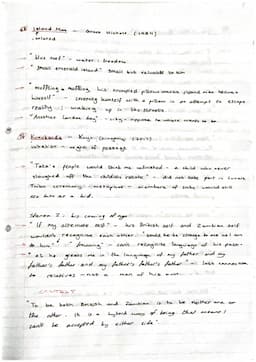 Island Man - Grace Nichols (1984)
- island
- "blue surf" - water: freedom
- "small emerald island" small but valuable to him
- "muffling muffling his crumpled pillow waves island man heaves
himself" - covering himself with a pillow in an attempt to escape
reality : waking up in
"Another London day" - city - opposite to where wants to be
- Kayo Chingonyi
- initiation - right of passage
- "Take a people would think me unfinished - a child who never
sloughed off the childish estate" - did not take part in Luvale
Tribe ceremony - metaphor - members of tribe would still
see him as a kid.
Stanza 2 : his coming of age
- "If my alternate self" - his British self and Zambian self
wouldn't recognise each other. Would be as strange to me as I am
to him" - "frowning" - can't recognise language of his past-
- as he greets me in the language of my father and my
father's father and my father's father's father" - lost connection
to relatives - not a man of his own.
CONTEXT
"To be both British and Zambian is to be neither one or
the other. It is a hybrid way of being that means I
can't be accepted by either side".